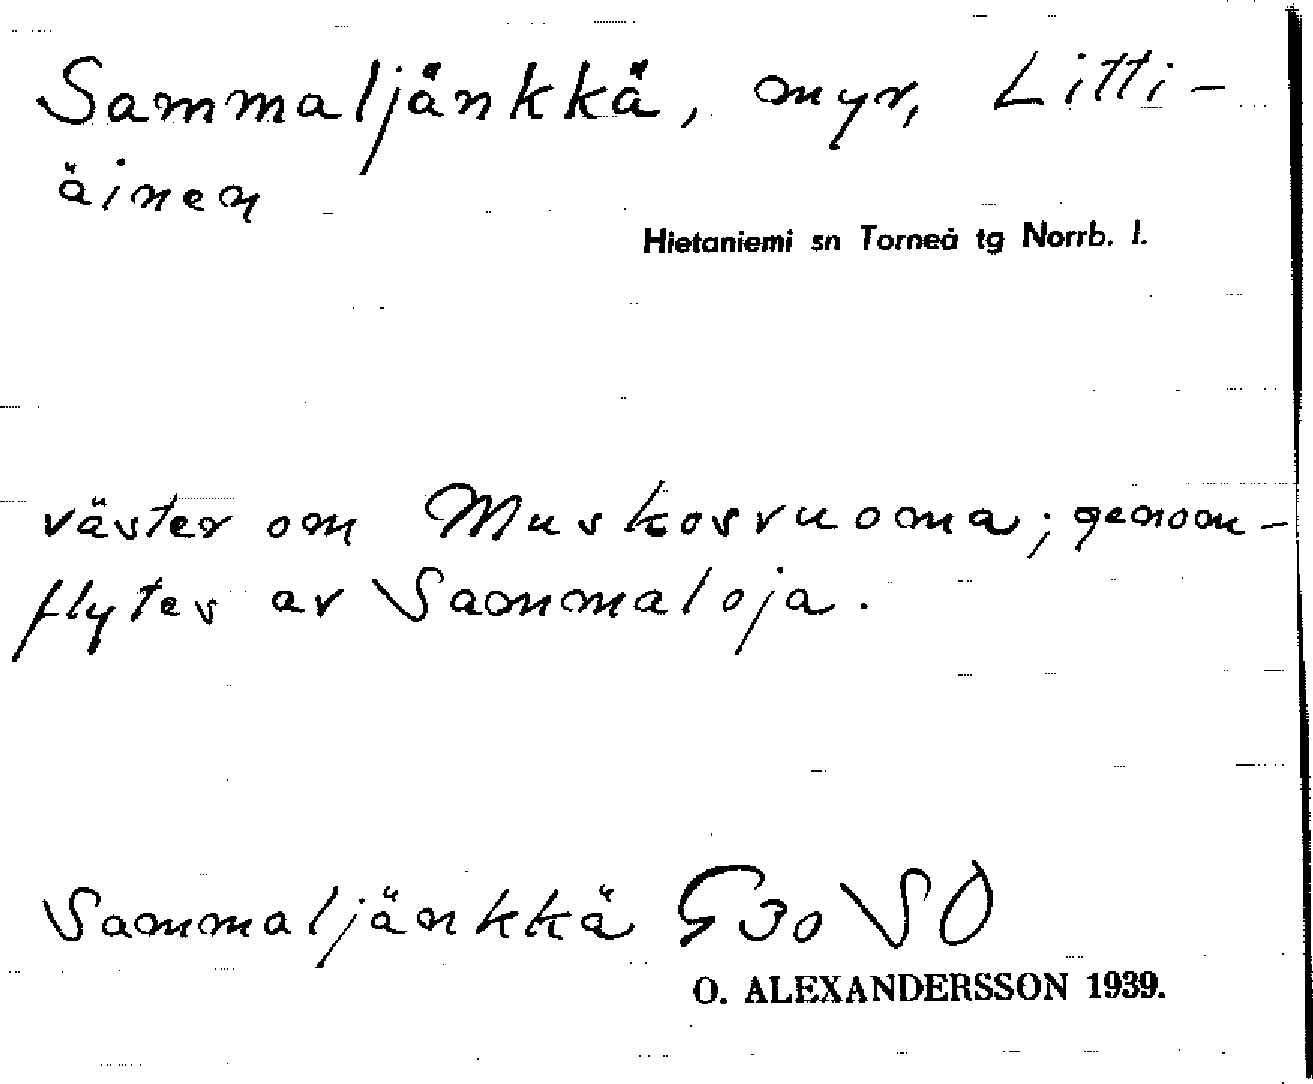 Sammaljänkkä, myr, Litti-
äinen
Hietaniemi sn Torneå tg Norrb. l.
väster om Muskosvuoma; genom-
flytes av Sammaloja.
Sammaljänkkä G 30 SO
O. ALEXANDERSSON 1939.